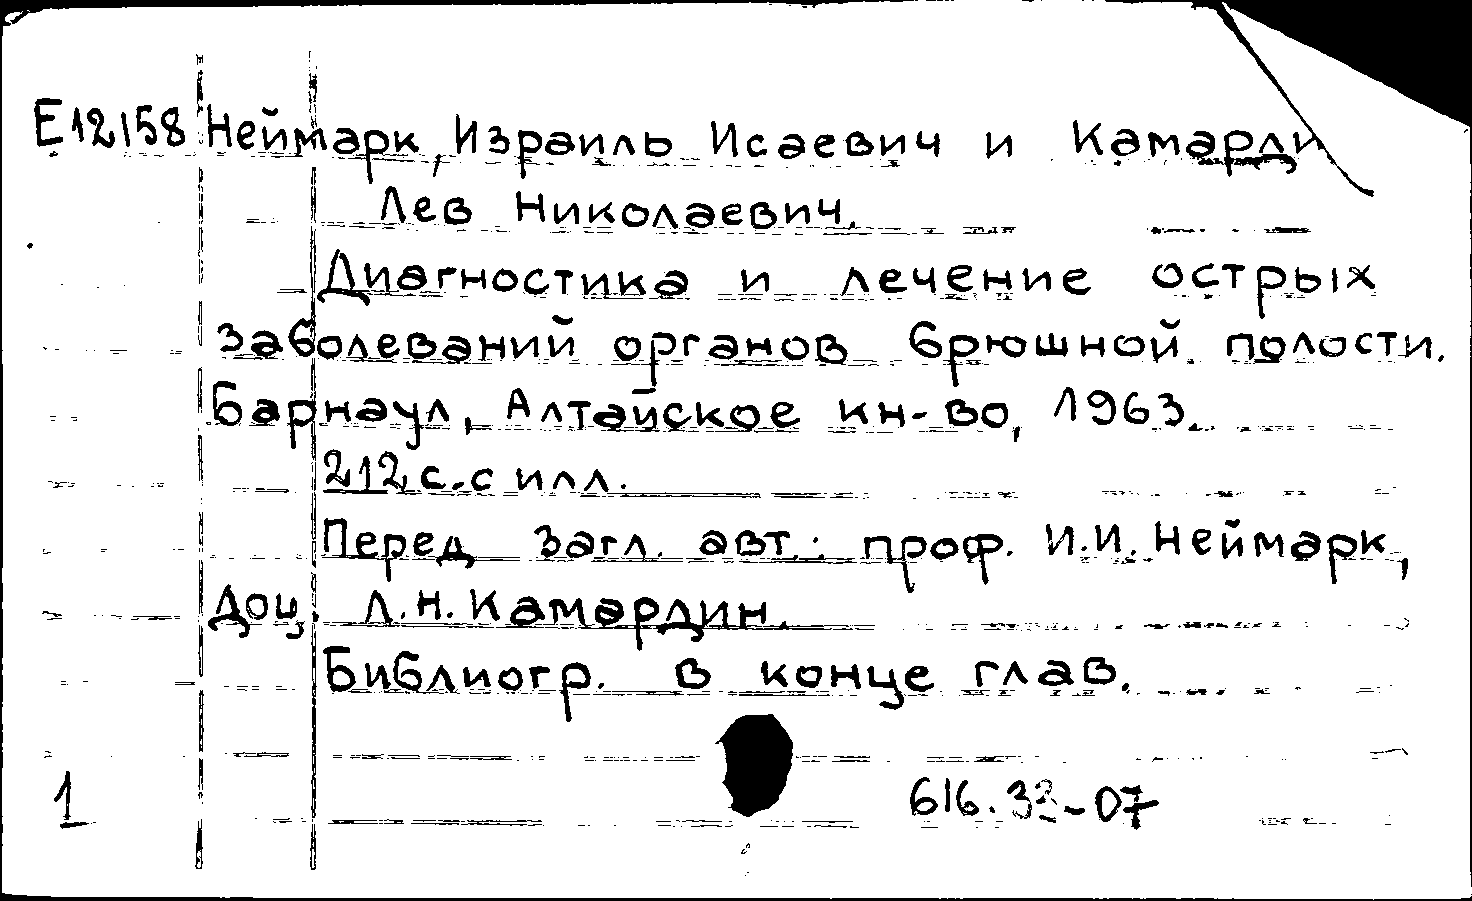 Е12158 Неймарк, Израиль Исаевич и Камарди
Лев Николаевич.
Диагностика и лечение острых
заболеваний органов брюшной полости.
Барнаул, Алтайское кн-во, 1963.
212 с. с илл.
Перед загл. авт.: проф. И.И. Неймарк,
доц. Л.Н. Камардин.
Библиогр. в конце глав.
1
616.33-07